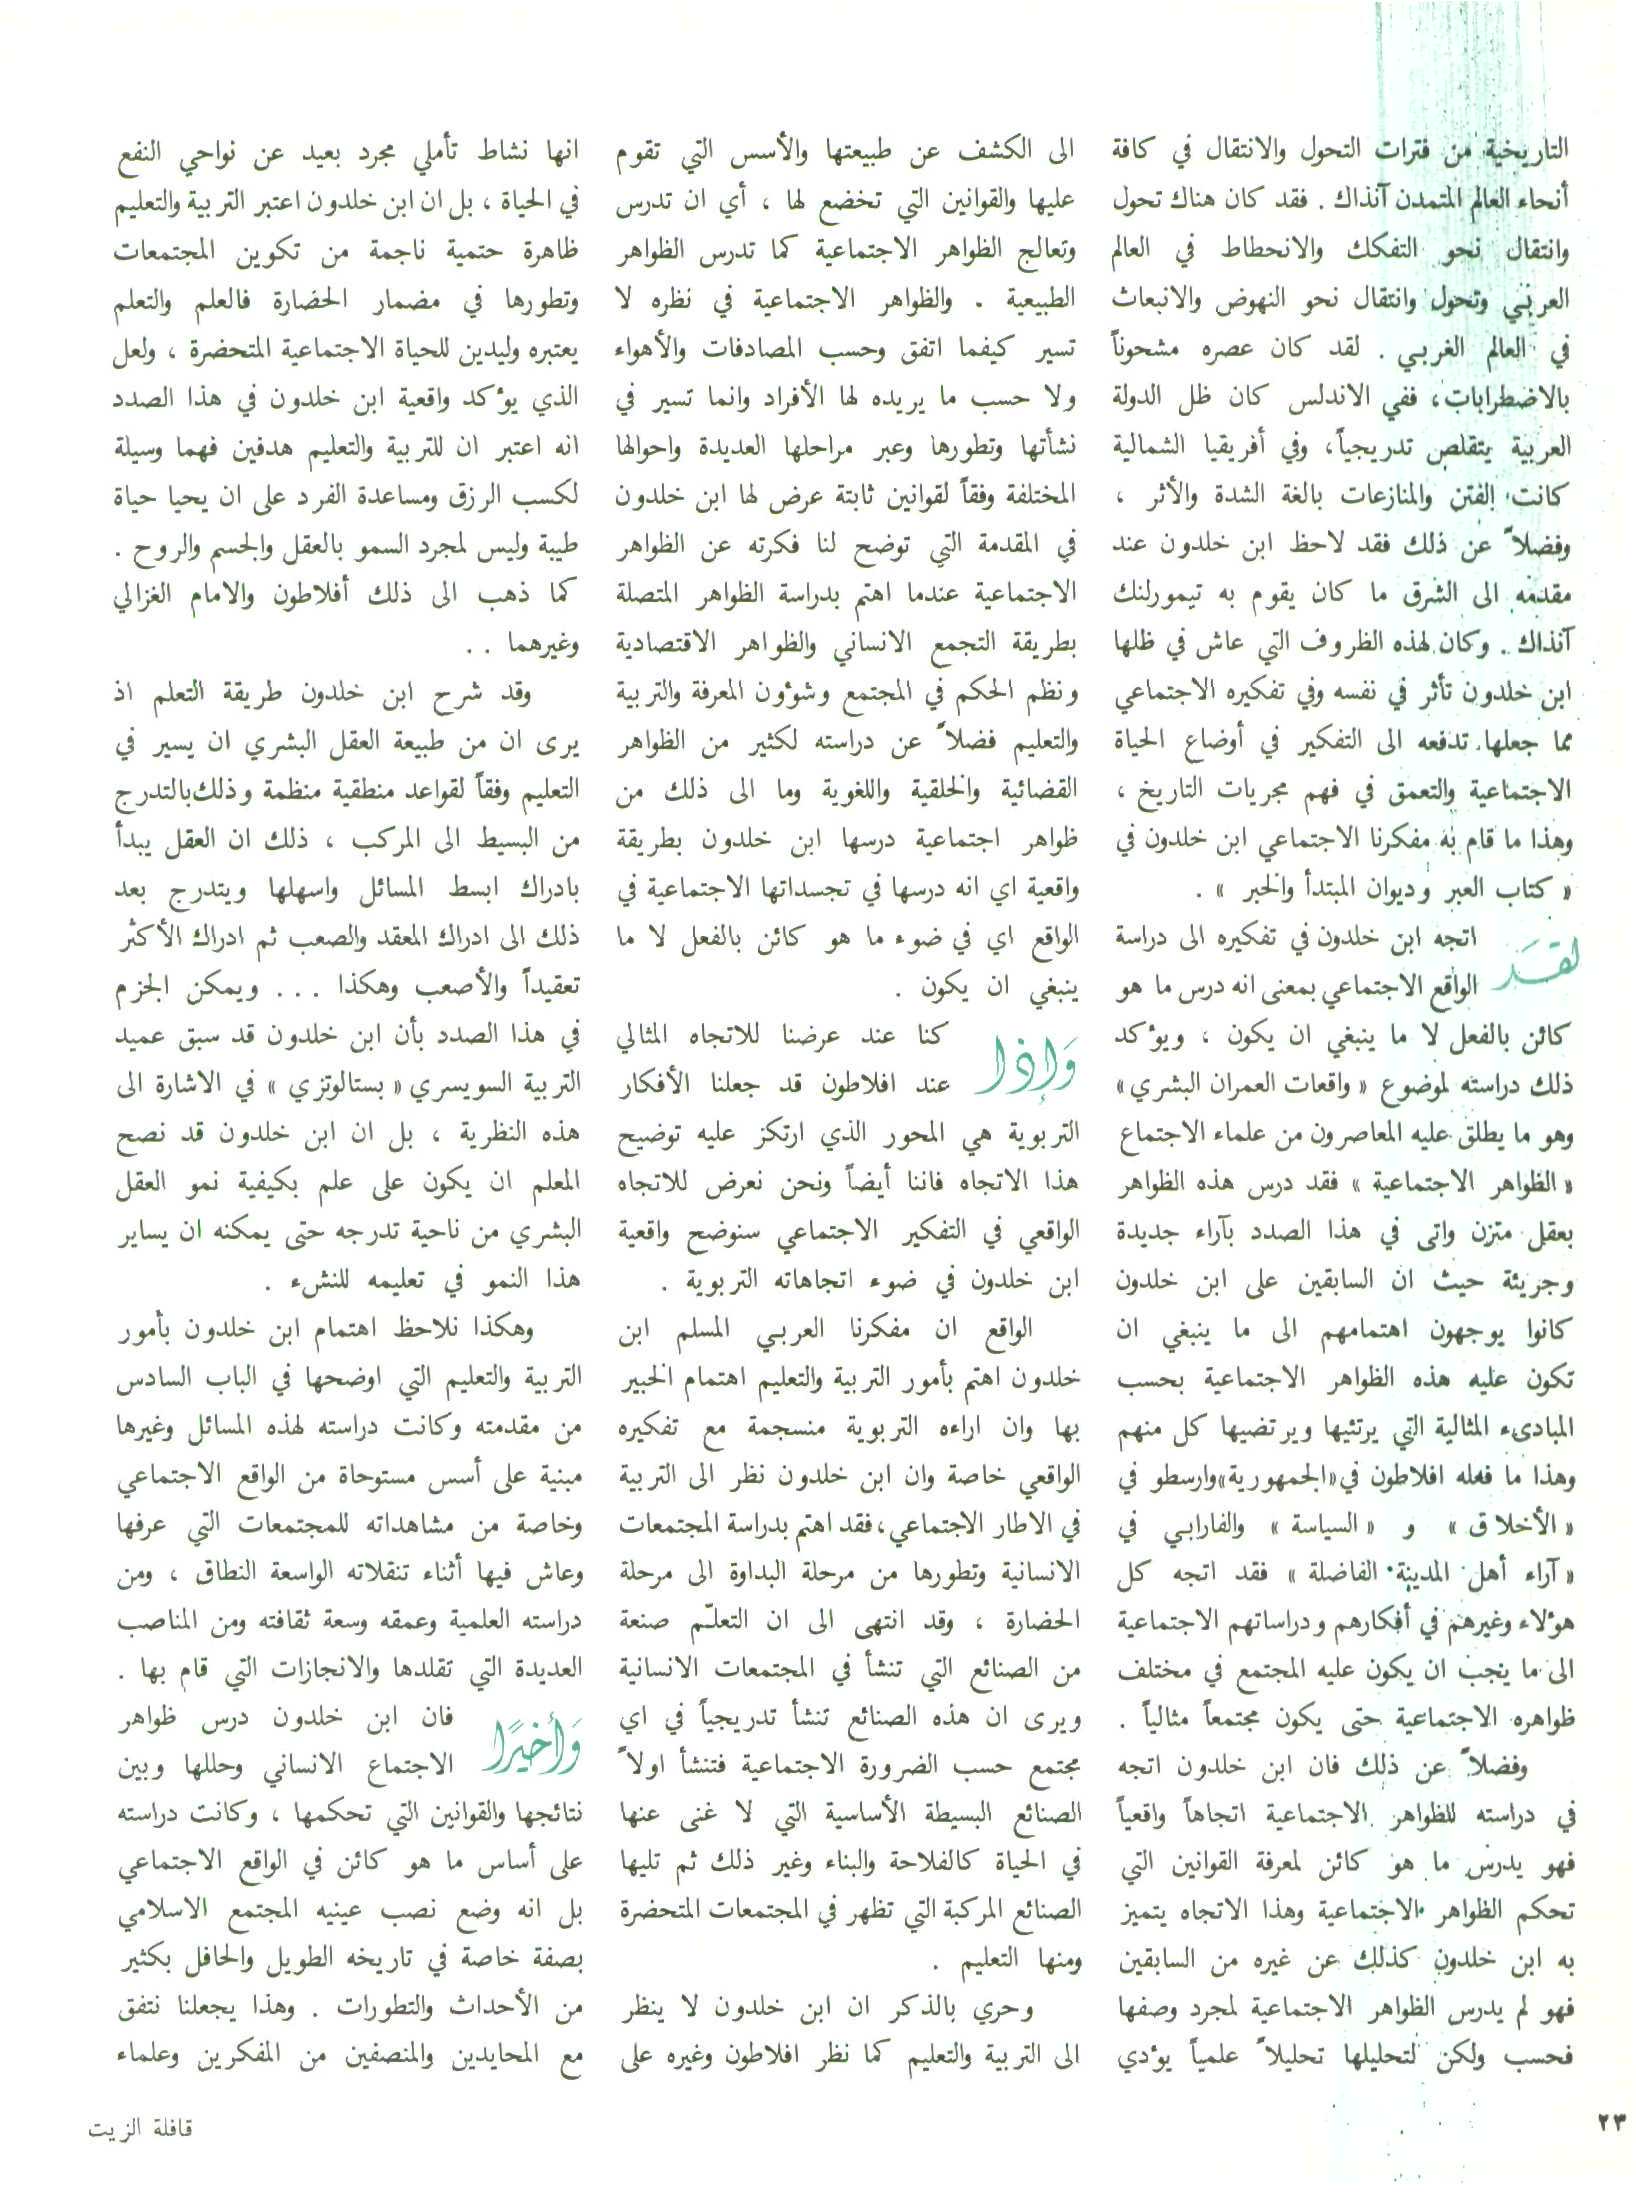 التاريخية من فترات التحول والانتقال في كافة
أنحاء العالم المتمدن آنذاك . فقد كان هناك تحول
وانتقال نحو التفكك والانحطاط في العالم
العربي وتحول وانتقال نحو النهوض والانبعاث
في العالم الغربي . لقد كان عصره مشحوناً
بالاضطرابات ، ففي الاندلس كان ظل الدولة
العربية يتقلص تدريجياً ، وفي أفريقيا الشمالية
كانت الفتن والمنازعات بالغة الشدة والأثر ،
وفضلاً عن ذلك فقد لاحظ ابن خلدون عند
مقدمه الى الشرق ما كان يقوم به تيمورلنك
آنذاك . وكان لهذه الظروف التي عاش في ظلها
ابن خلدون تأثر في نفسه وفي تفكيره الاجتماعي
مما جعلها تدفعه الى التفكير في أوضاع الحياة
الاجتماعية والتعمق في فهم مجريات التاريخ ،
وهذا ما قام به مفكرنا الاجتماعي ابن خلدون في
« كتاب العبر وديوان المبتدأ والخبر » .
لقد اتجه ابن خلدون في تفكيره الى دراسة
الواقع الاجتماعي بمعنى انه درس ما هو
كائن بالفعل لا ما ينبغي ان يكون ، ويؤكد
ذلك دراسته لموضوع « واقعات العمران البشري »
وهو ما يطلق عليه المعاصرون من علماء الاجتماع
« الظواهر الاجتماعية » فقد درس هذه الظواهر
بعقل متزن واتى في هذا الصدد بآراء جديدة
وجريئة حيث ان السابقين على ابن خلدون
كانوا يوجهون اهتمامهم الى ما ينبغي ان
تكون عليه هذه الظواهر الاجتماعية بحسب
المبادىء المثالية التي يرتئيها ويرتضيها كل منهم
وهذا ما فعله افلاطون في «الجمهورية» وارسطو في
« الأخلاق » و « السياسة » والفارابي في
« آراء أهل المدينة الفاضلة » فقد اتجه كل
هؤلاء وغيرهم في أفكارهم ودراساتهم الاجتماعية
الى ما يجب ان يكون عليه المجتمع في مختلف
ظواهره الاجتماعية حتى يكون مجتمعاً مثالياً .
وفضلاً عن ذلك فان ابن خلدون اتجه
في دراسته للظواهر الاجتماعية اتجاهاً واقعياً
فهو يدرس ما هو كائن لمعرفة القوانين التي
تحكم الظواهر الاجتماعية وهذا الاتجاه يتميز
به ابن خلدون كذلك عن غيره من السابقين
فهو لم يدرس الظواهر الاجتماعية لمجرد وصفها
فحسب ولكن لتحليلها تحليلاً علمياً يؤدي
الى الكشف عن طبيعتها والأسس التي تقوم
عليها والقوانين التي تخضع لها ، أي ان تدرس
وتعالج الظواهر الاجتماعية كما تدرس الظواهر
الطبيعية . والظواهر الاجتماعية في نظره لا
تسير كيفما اتفق وحسب المصادفات والأهواء
ولا حسب ما يريده لها الأفراد وانما تسير في
نشأتها وتطورها وعبر مراحلها العديدة واحوالها
المختلفة وفقاً لقوانين ثابتة عرض لها ابن خلدون
في المقدمة التي توضح لنا فكرته عن الظواهر
الاجتماعية عندما اهتم بدراسة الظواهر المتصلة
بطريقة التجمع الانساني والظواهر الاقتصادية
ونظم الحكم في المجتمع وشؤون المعرفة والتربية
والتعليم فضلاً عن دراسته لكثير من الظواهر
القضائية والخلقية واللغوية وما الى ذلك من
ظواهر اجتماعية درسها ابن خلدون بطريقة
واقعية اي انه درسها في تجسداتها الاجتماعية في
الواقع اي في ضوء ما هو كائن بالفعل لا ما
ينبغي ان يكون .
وَإذا كنا عند عرضنا للاتجاه المثالي
عند افلاطون قد جعلنا الأفكار
التربوية هي المحور الذي ارتكز عليه توضيح
هذا الاتجاه فاننا أيضاً ونحن نعرض للاتجاه
الواقعي في التفكير الاجتماعي سنوضح واقعية
ابن خلدون في ضوء اتجاهاته التربوية .
الواقع ان مفكرنا العربي المسلم ابن
خلدون اهتم بأمور التربية والتعليم اهتمام الخبير
بها وان اراءه التربوية منسجمة مع تفكيره
الواقعي خاصة وان ابن خلدون نظر الى التربية
في الاطار الاجتماعي ، فقد اهتم بدراسة المجتمعات
الانسانية وتطورها من مرحلة البداوة الى مرحلة
الحضارة ، وقد انتهى الى ان التعلّم صنعة
من الصنائع التي تنشأ في المجتمعات الانسانية
ويرى ان هذه الصنائع تنشأ تدريجياً في اي
مجتمع حسب الضرورة الاجتماعية فتنشأ اولاً
الصنائع البسيطة الأساسية التي لا غنى عنها
في الحياة كالفلاحة والبناء وغير ذلك ثم تليها
الصنائع المركبة التي تظهر في المجتمعات المتحضرة
ومنها التعليم .
وحري بالذكر ان ابن خلدون لا ينظر
الى التربية والتعليم كما نظر افلاطون وغيره على
انها نشاط تأملي مجرد بعيد عن نواحي النفع
في الحياة ، بل ان ابن خلدون اعتبر التربية والتعليم
ظاهرة حتمية ناجمة من تكوين المجتمعات
وتطورها في مضمار الحضارة فالعلم والتعلم
يعتبره وليدين للحياة الاجتماعية المتحضرة ، ولعل
الذي يؤكد واقعية ابن خلدون في هذا الصدد
انه اعتبر ان للتربية والتعليم هدفين فهما وسيلة
لكسب الرزق ومساعدة الفرد على ان يحيا حياة
طيبة وليس لمجرد السمو بالعقل والجسم والروح .
كما ذهب الى ذلك أفلاطون والامام الغزالي
وغيرهما . .
وقد شرح ابن خلدون طريقة التعلم اذ
يرى ان من طبيعة العقل البشري ان يسير في
التعليم وفقاً لقواعد منطقية منظمة وذلك بالتدرج
من البسيط الى المركب ، ذلك ان العقل يبدأ
بادراك ابسط المسائل واسهلها ويتدرج بعد
ذلك الى ادراك المعقد والصعب ثم ادراك الأكثر
تعقيداً والأصعب وهكذا . . . ويمكن الجزم
في هذا الصدد بأن ابن خلدون قد سبق عميد
التربية السويسري « بستالوتزي » في الاشارة الى
هذه النظرية ، بل ان ابن خلدون قد نصح
المعلم ان يكون على علم بكيفية نمو العقل
البشري من ناحية تدرجه حتى يمكنه ان يساير
هذا النمو في تعليمه للنشء .
وهكذا نلاحظ اهتمام ابن خلدون بأمور
التربية والتعليم التي اوضحها في الباب السادس
من مقدمته وكانت دراسته لهذه المسائل وغيرها
مبنية على أسس مستوحاة من الواقع الاجتماعي
وخاصة من مشاهداته للمجتمعات التي عرفها
وعاش فيها أثناء تنقلاته الواسعة النطاق ، ومن
دراسته العلمية وعمقه وسعة ثقافته ومن المناصب
العديدة التي تقلدها والانجازات التي قام بها .
وَأخيرًا فان ابن خلدون درس ظواهر
الاجتماع الانساني وحللها وبين
نتائجها والقوانين التي تحكمها ، وكانت دراسته
على أساس ما هو كائن في الواقع الاجتماعي
بل انه وضع نصب عينيه المجتمع الاسلامي
بصفة خاصة في تاريخه الطويل والحافل بكثير
من الأحداث والتطورات . وهذا يجعلنا نتفق
مع المحايدين والمنصفين من المفكرين وعلماء
٢٣
قافلة الزيت